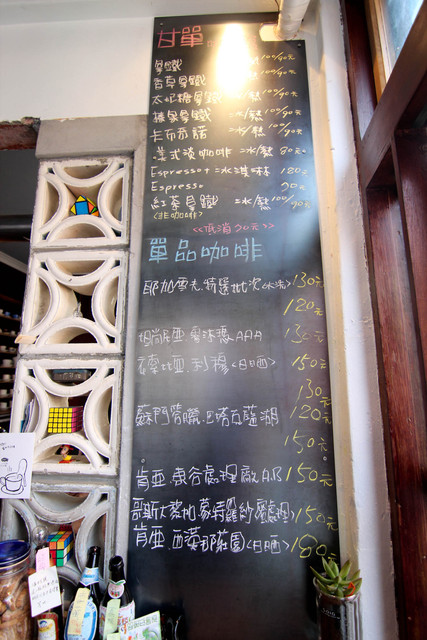 甘單
拿鐵 100/90元
香草拿鐵 冰/熱 100/90元
太妃糖拿鐵 冰/熱 100/90元
榛果拿鐵 =冰/熱 100/90元
卡布奇諾 =冰/熱 100/90元
美式淡咖啡 =冰/熱 80元
Espresso+冰淇淋 180元
Espresso 90元
紅茶拿鐵 =冰/熱 100/90元
(非咖啡)
<<低消90元>>
單品咖啡
耶加雪夫.特選批次(水洗) 130元
120元
坦尚尼亞. AAA 130元
衣索比亞. (日晒) 150元
130元
蘇門答臘. 湖 120元
150元
肯亞. 處理廠AB 150元
哥斯大黎加 蜜處理) 150元
肯亞. 莊園(日晒) 180元